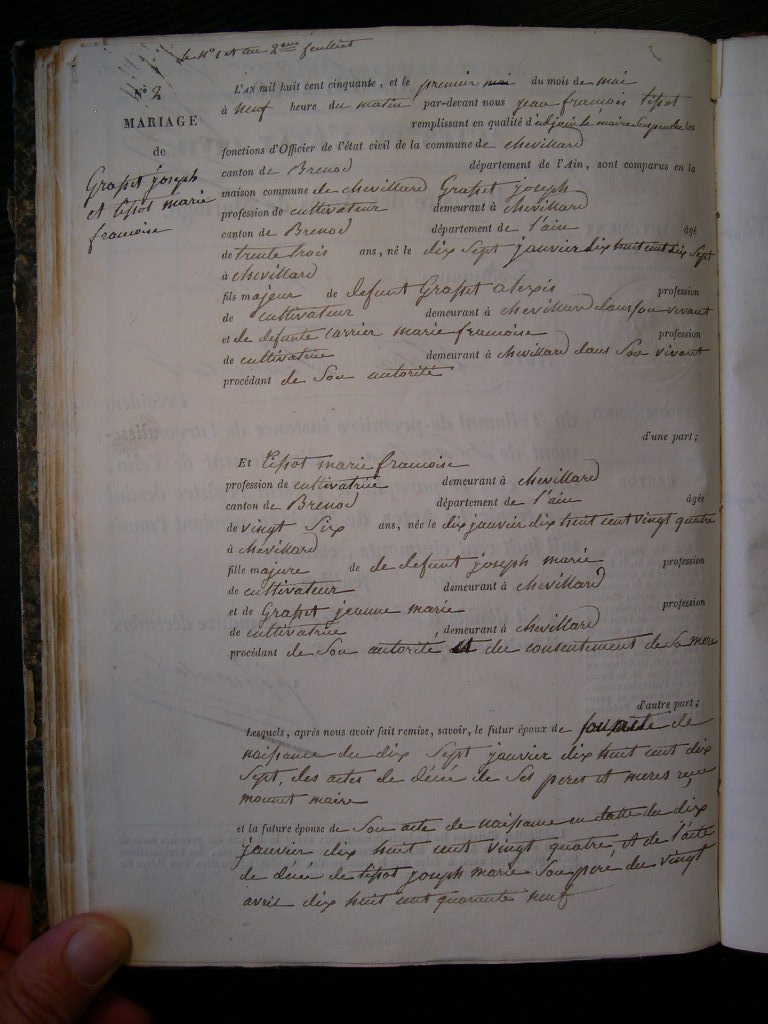 N° 2
MARIAGE
de
Grasset joseph
et tissot marie
francoise
L'AN mil huit cent cinquante, et le premier mai du mois de mai
à neuf heure du matin par-devant nous jean francois tissot
remplissant en qualité d'adjoint le maire les
fonctions d'Officier de l'état civil de la commune de chevillard
canton de Brenod département de l'Ain, sont comparus en la
maison commune de chevillard Grasset joseph
profession de cultivateur demeurant à chevillard
canton de Brenod département de l'ain âgé
de trente trois ans, né le dix sept janvier dix huit cent dix sept
à chevillard
fils majeur de defunt Grasset alexis profession
de cultivateur demeurant à chevillard dans son vivant
et de defunte carrier marie francoise profession
de cultivatrice demeurant à chevillard dans son vivant
procédant de son autorité
d'une part;
Et tissot marie francoise
profession de cultivatrice demeurant à chevillard
canton de Brenod département de l'ain âgée
de vingt six ans, née le dix janvier dix huit cent vingt quatre
à chevillard
fille majeure de de defunt joseph marie profession
de cultivateur demeurant à chevillard
et de Grasset jeanne marie profession
de cultivatrice demeurant à chevillard
procédant de son autorité et du consentement de sa mere
d'autre part;
Lesquels, après nous avoir fait remise, savoir, le futur époux de son acte de
naissance du dix sept janvier dix huit cent dix
sept, des actes de décée de ses peres et meres
maire
et la future épouse de son acte de naissance en datte du dix
janvier dix huit cent vingt quatre, et de l'acte
de décée de tissot joseph marie son pere du vingt
avril dix huit cent quarante neuf